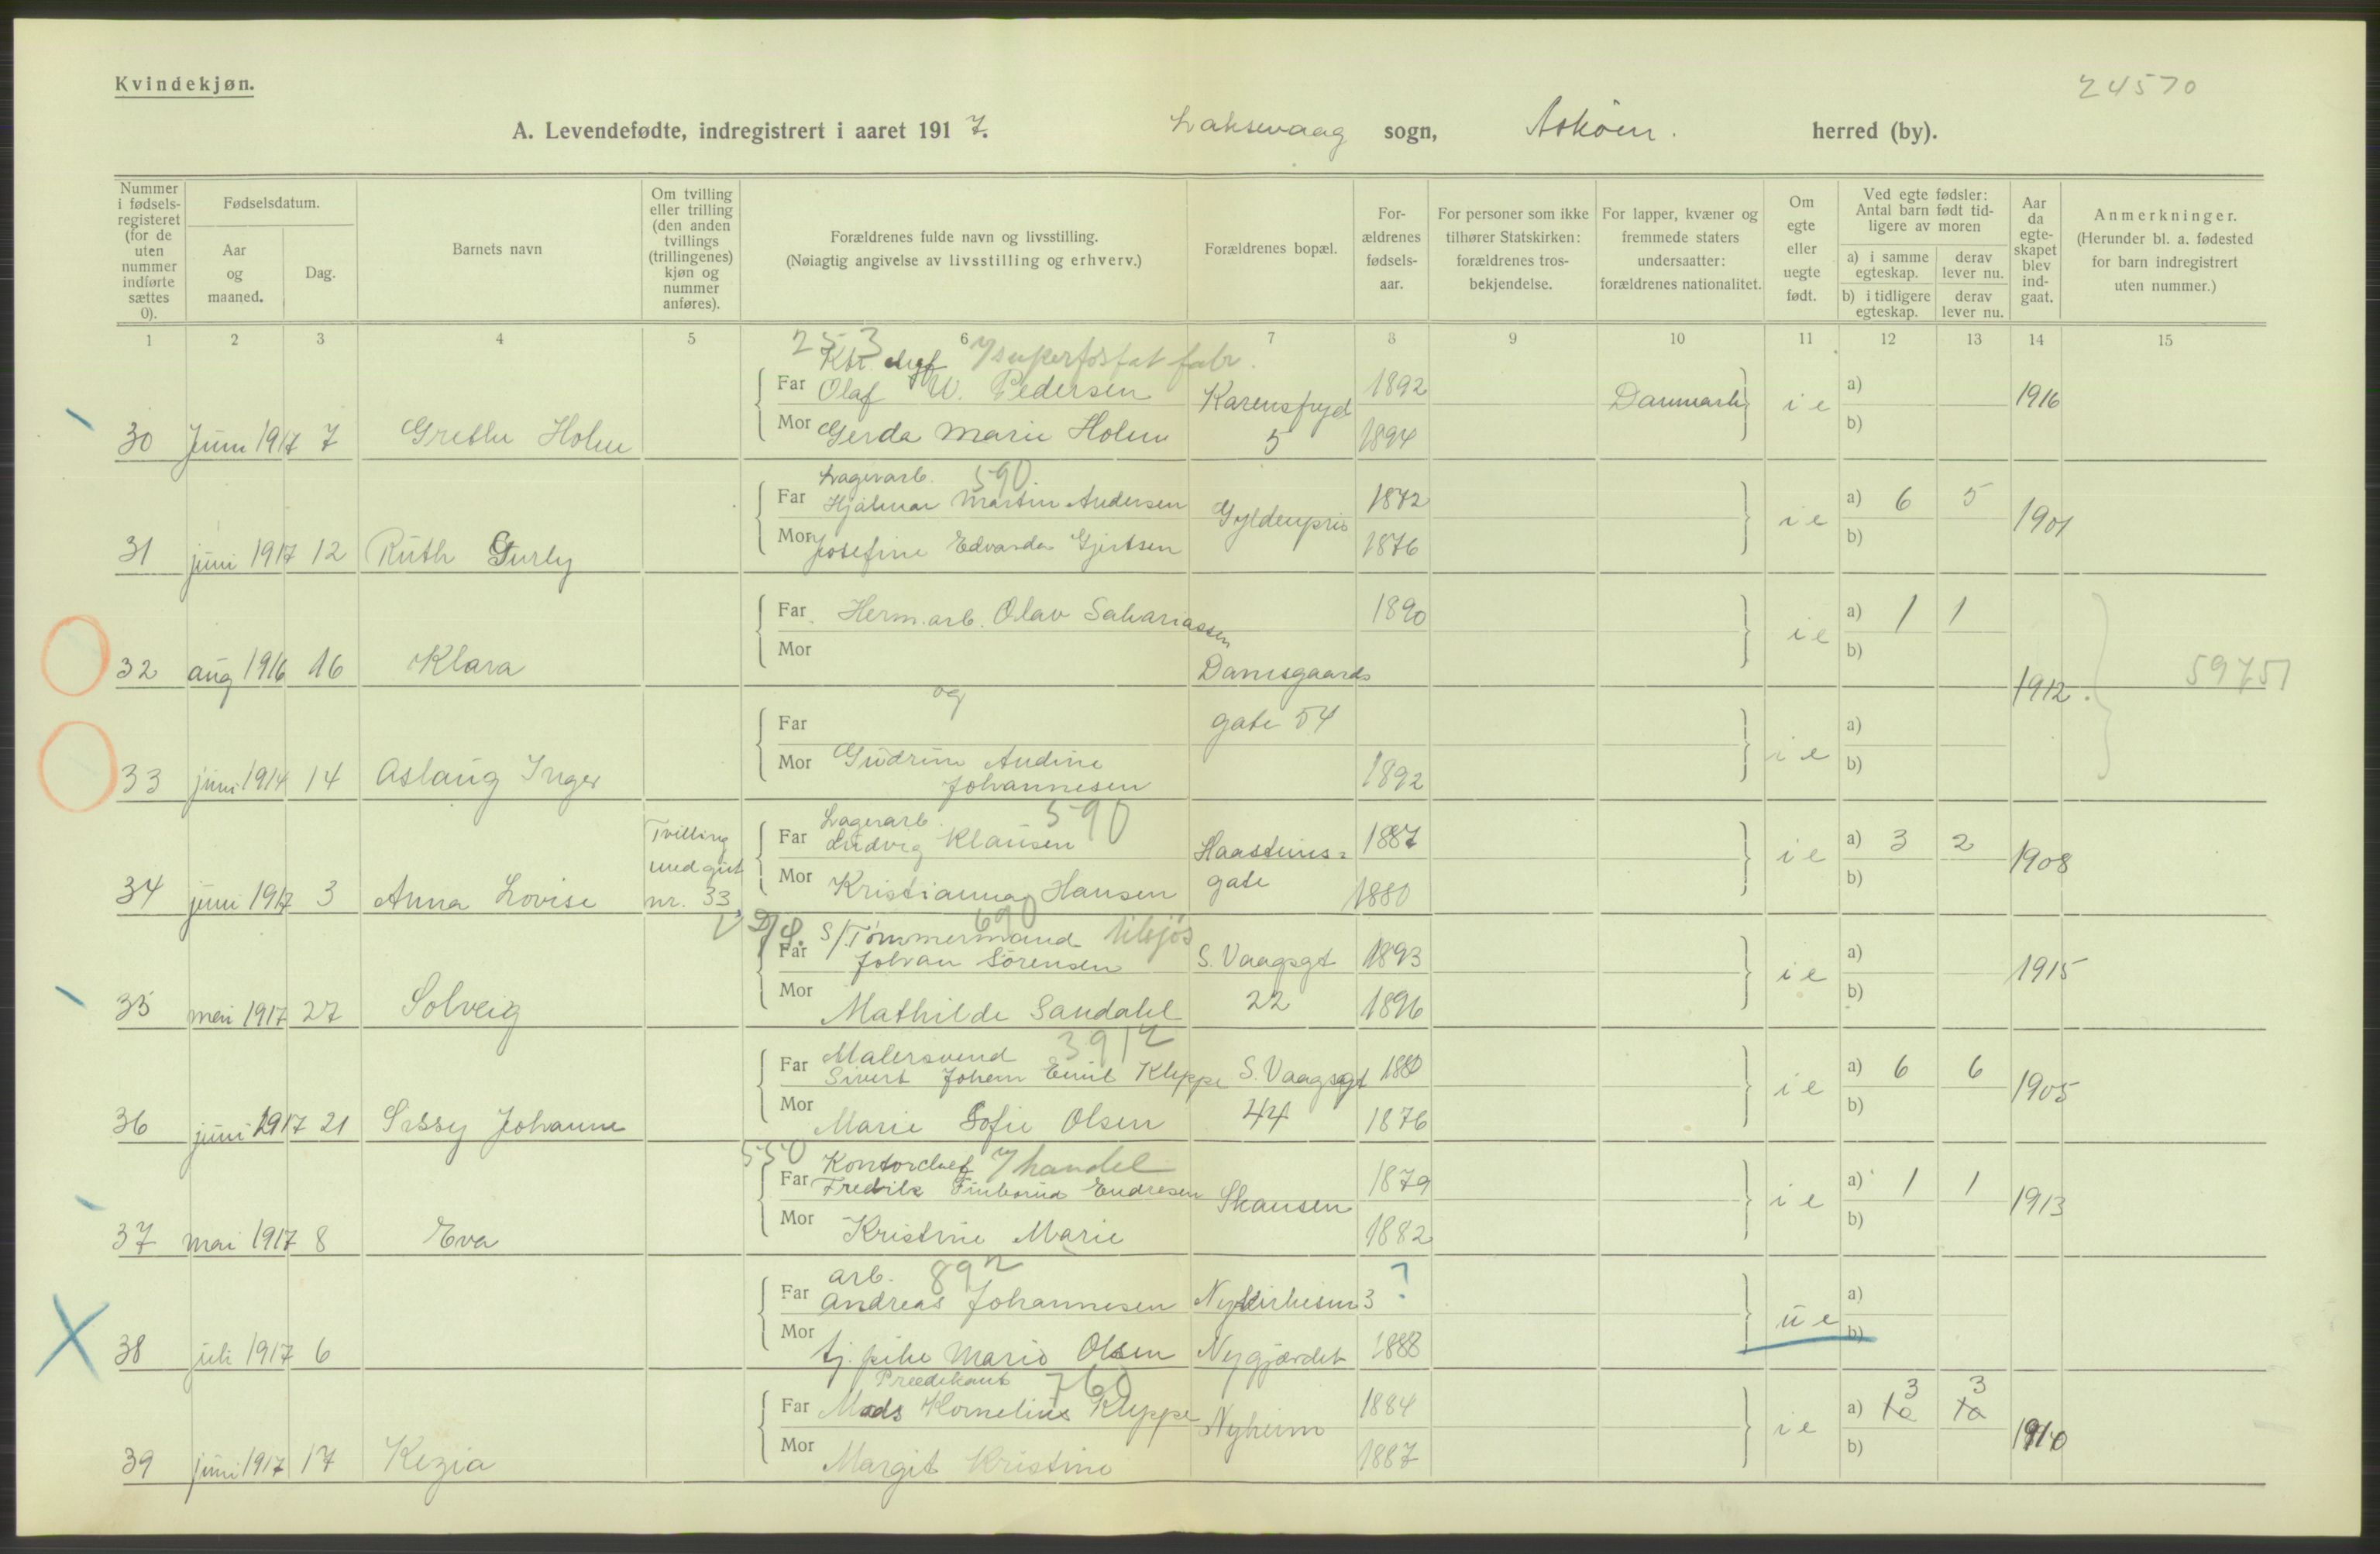 Kvindekjøn.
24570
A. Levendefødte, indregistrert i aaret 1917. Laksevaag sogn, Askøen. herred (by).
Nummer i fødselsregisteret (for de uten nummer indførte sættes 0).
Fødselsdatum.
Aar og maaned.
Dag.
Barnets navn
Om tvilling eller trilling (den anden tvillings (trillingenes) kjøn og nummer anføres).
Forældrenes fulde navn og livsstilling.
(Nøiagtig angivelse av livsstilling og erhverv.)
Forældrenes bopæl.
Forældrenes fødselsaar.
For personer som ikke tilhører Statskirken: forældrenes trosbekjendelse.
For lapper, kvæner og fremmede staters undersaatter: forældrenes nationalitet.
Om egte eller uegte født.
Ved egte fødsler: Antal barn født tidligere av moren
a) i samme egteskap. derav lever nu.
b) i tidligere egteskap. derav lever nu.
Aar da egteskapet blev indgaat.
Anmerkninger.
(Herunder bl. a. fødested for barn indregistrert uten nummer.)
1 2 3 4 5 6 7 8 9 10 11 12 13 14 15
253 superfosfat fabr.
Far Olaf W. Pedersen Karensfryd 1892 Danmark i e a) 1916
30 Juni 1917 7 Grethe Holm Mor Gerda Marie Holm 5 1894 b)
Lagerarb. 590
Far Hjalmar Martin Andersen Gyldenpris 1872 i e a) 6 5 1901
31 juni 1917 12 Ruth Gurly Mor Josefine Edvarda Gjertsen 1876 b)
Far Herm.arb. Olav Sakariassen 1890 i e a) 1 1
32 aug 1916 16 Klara Mor Damsgaards b) 1912. 59751
og
Far gate 54 i e a)
33 juni 1914 14 Aslaug Inger Mor Gudrun Andine Johannesen 1892 b)
Lagerarb. 590
Tvilling med gut nr. 33
Far Ludvig Klausen Haasteins= 1887 i e a) 3 2 1908
34 juni 1917 3 Anna Lovise Mor Kristianna Hansen gate 1880 b)
D/S. S/Tømmermand 690 tilsjøs
Far Johan Sørensen S. Vaagsgt 1893 i e a) 1915
35 mai 1917 27 Solveig Mor Mathilde Sandahl 22 1896 b)
Malersvend 3912
Far Sivert Johan Emil Kleppe S. Vaagsgt 1880 i e a) 6 6 1905
36 juni 1917 21 Sissy Johanne Mor Marie Sofie Olsen 44 1876 b)
550 Kontorchef handel
Far Fredrik Endresen Skansen 1879 i e a) 1 1 1913
37 mai 1917 8 Eva Mor Kristine Marie 1882 b)
arb. 892
Far Andreas Johannesen Nykirkesm 3 ? u e a)
38 juli 1917 6 Mor tj. pike Marie Olsen Nygjærdet 1888 b)
Predikant 760
Far Mads Kornelius Kleppe Nyheim 1884 i e a) 3 3 1910
39 juni 1917 17 Kezia Mor Margit Kristine 1887 b)